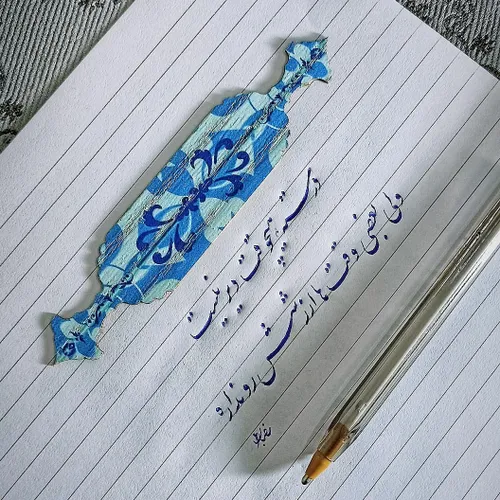 درسته هیچوقت دیر نیست
ولی بعضی وقت ها ارزشش رو نداره